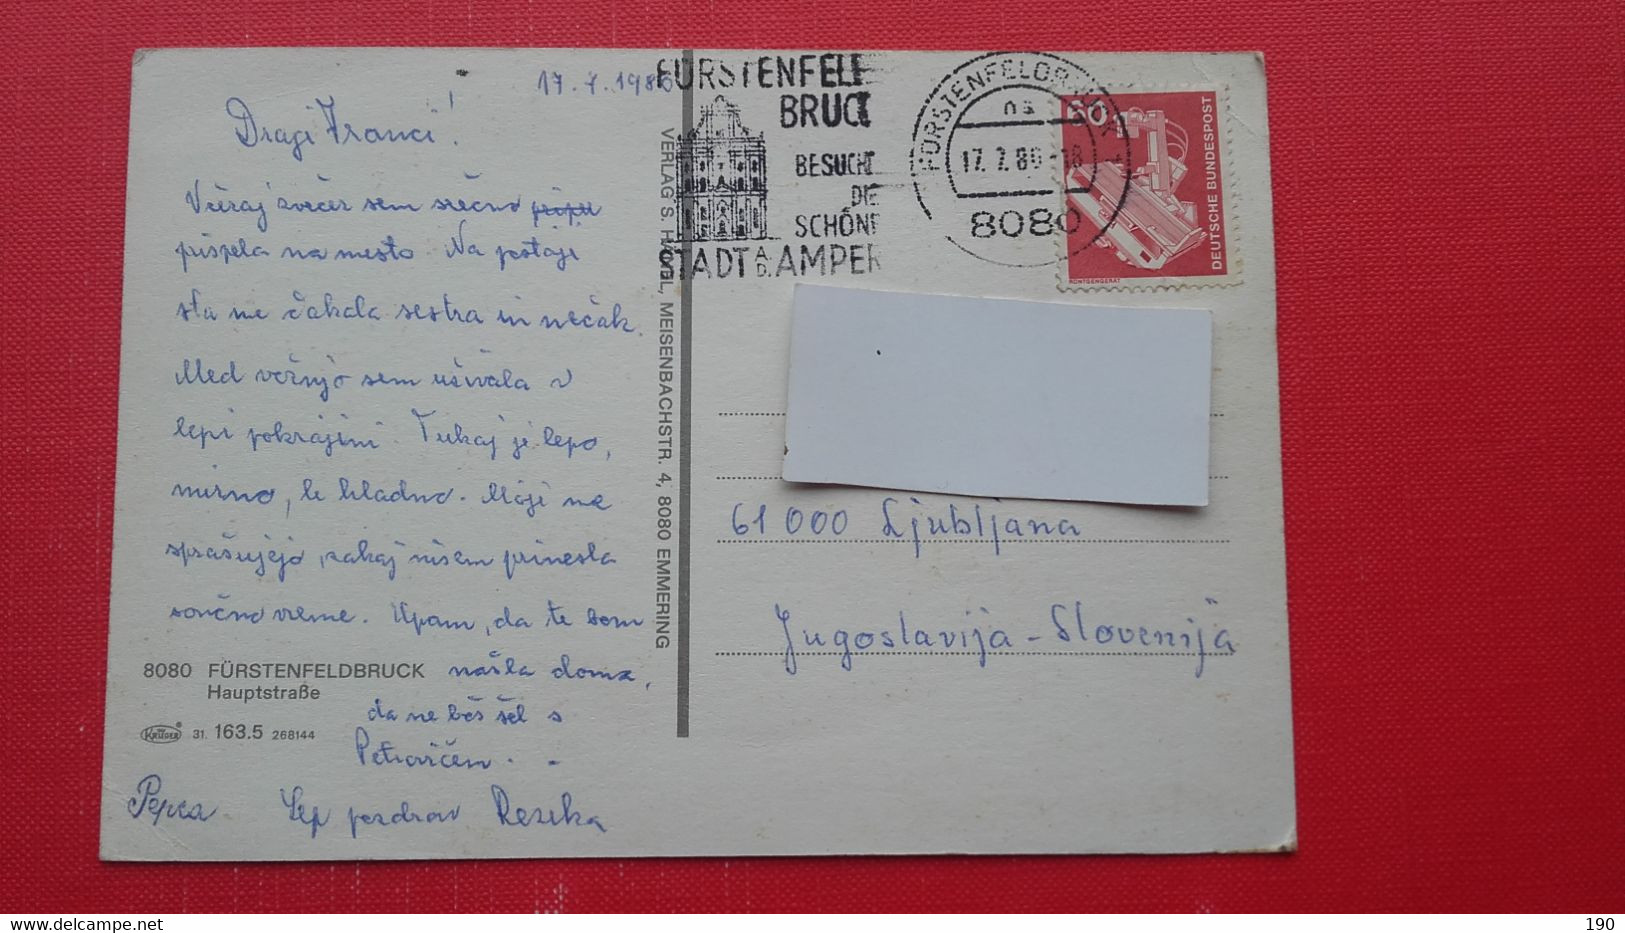 17. 7. 1986
Dragi Franci!
Včeraj zvečer sem srečno
prispela na mesto. Na postaji
sta me čakala sestra in nečak.
Med vožnjo sem uživala v
lepi pokrajini. Tukaj je lepo,
mirno, le hladno. Moji me
sprašujejo, zakaj nisem prinesla
sončno vreme. Upam, da te bom
našla doma,
da ne boš šel s
Petrovičem.
Lep pozdrav Rezika
Pepca
8080 FÜRSTENFELDBRUCK
Hauptstraße
KRÜGER 31. 163.5 268144
VERLAG S. HÄGL, MEISENBACHSTR. 4, 8080 EMMERING
FÜRSTENFELD
BRUCK
BESUCHT
DIE
SCHÖNE
STADT A.D. AMPER
FÜRSTENFELDBRUCK
17. 7. 86-18
8080
60
DEUTSCHE BUNDESPOST
RÖNTGENGERÄT
61 000 Ljubljana
Jugoslavija - Slovenija
delcampe.net
wien4ever
190